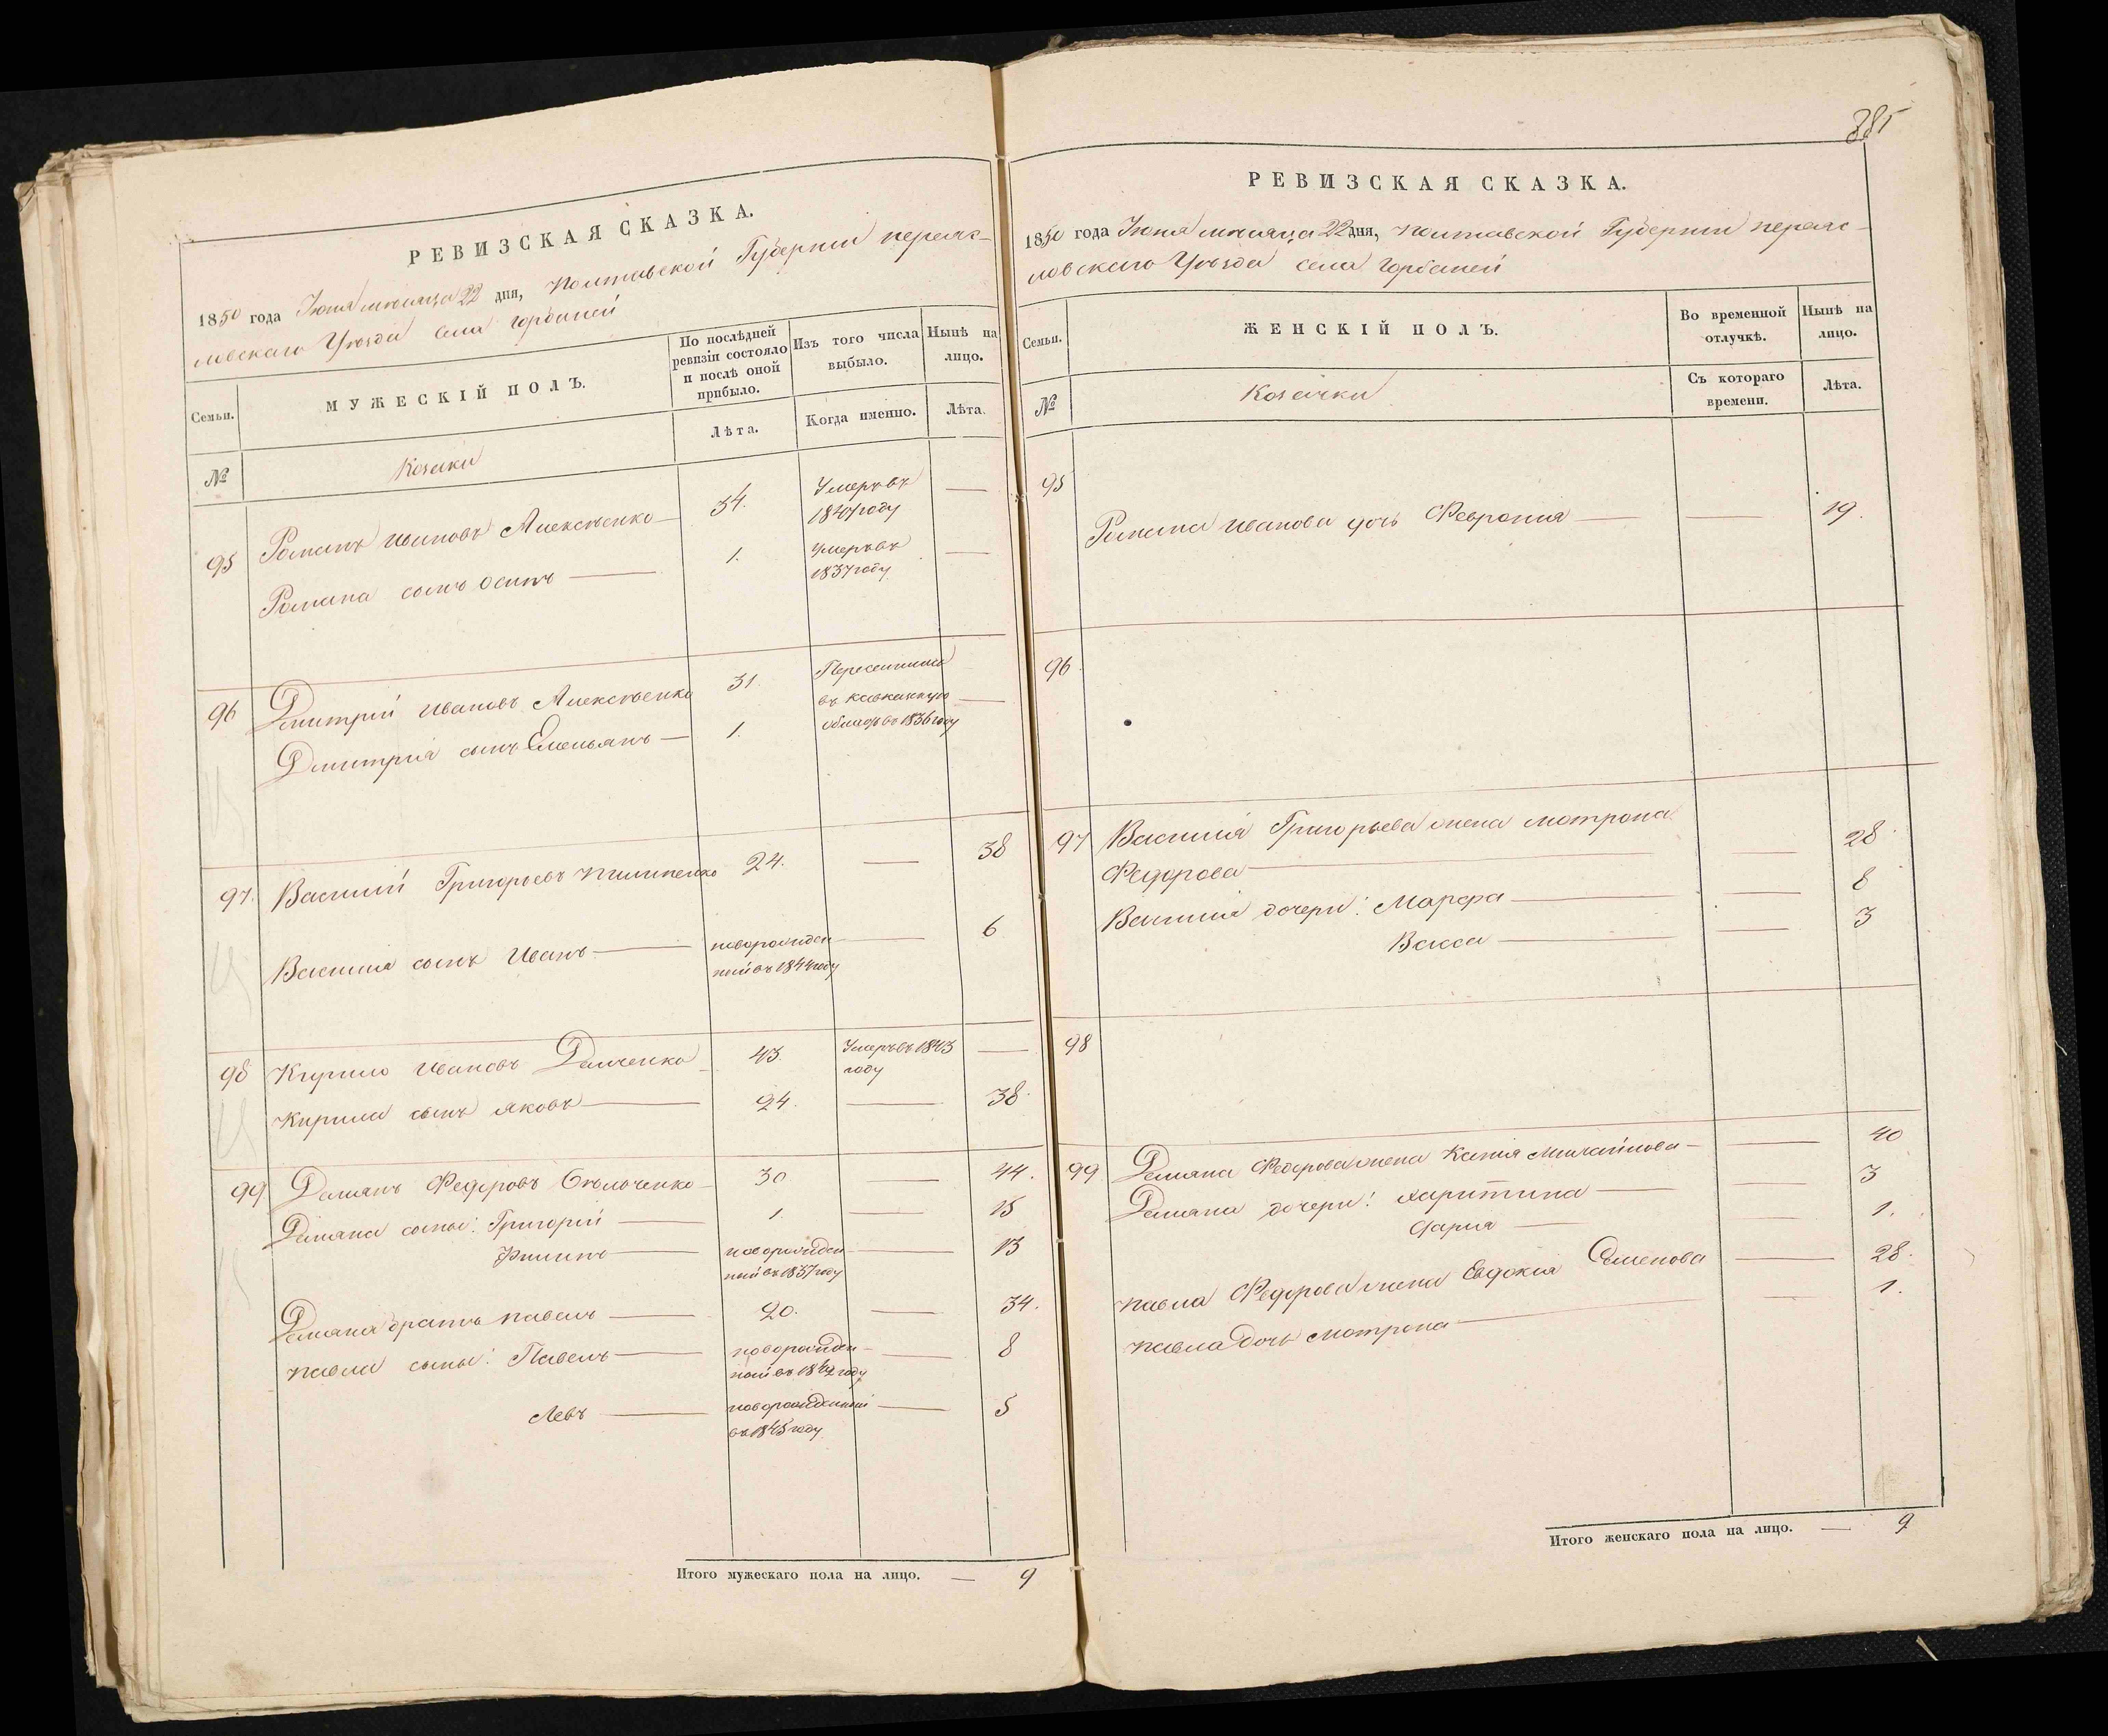 РЕВИЗСКАЯ СКАЗКА.
1850 года Іюня мѣсяца 22 дня, Полтавской Губерніи переяс-
ловскаго Уѣзда села Горбаней
Семьи.
МУЖЕСКІЙ ПОЛЪ.
По послѣдней ревизіи состояло и послѣ оной прибыло.
Изъ того числа выбыло.
Нынѣ на лицо.
№
Козаки
Лѣта.
Когда именно.
Лѣта.
95 Романъ Ивановъ Алексѣенко — 34. Умеръ въ —
году
Романа сынъ Осипъ — 1. Умеръ въ —
1837 году
96 Дмитрий Ивановъ Алексѣенко 31. Переселился
въ Кавказкую —
область въ 1836 году
Дмитрия сынъ Емельянъ — 1.
97. Василий Григорьевъ Пилипенко 24. — 38
Василия сынъ Иванъ — новорожден — 6
ный въ 1844 году
98 Кирило Ивановъ Демченко 43. Умеръ въ 1843 —
году
Кирила сынъ Яковъ — 24. — 38.
99 Демянъ Федоровъ 30 — 44.
Демяна сыны: Григорий — 1. — 15
Филипъ — новорожден — 13
ный въ 1837 году
Демяна братъ Павелъ — 20. — 34.
Павла сыны: Павелъ — новорожден — 8
ный въ 1842 году
Левъ — новорожденный — 5
въ 1845 году
Итого мужескаго пола на лицо. — 9
385
РЕВИЗСКАЯ СКАЗКА.
1850 года Іюня мѣсяца 22 дня, Полтавской Губерніи переяс-
ловскаго Уѣзда села Горбаней
Семьи.
ЖЕНСКІЙ ПОЛЪ.
Во временной отлучкѣ.
Нынѣ на лицо.
№
Козачки
Съ котораго времени.
Лѣта.
95
Романа Иванова дочь Феврония — — 19.
96.
97 Василия Григорьева жена Мотрона
Федорова — — 28.
Василия дочери: Марфа — — 8
Васса — — 3
98
99 Демяна Федорова жена Ксения Михайлова — — 40
Демяна дочери: Харитина — — 3
Дария — — 1.
Павла Федорова жена Евдокия Семенова — 28.
Павла дочь Мотрона — — 1.
Итого женскаго пола на лицо. — 9